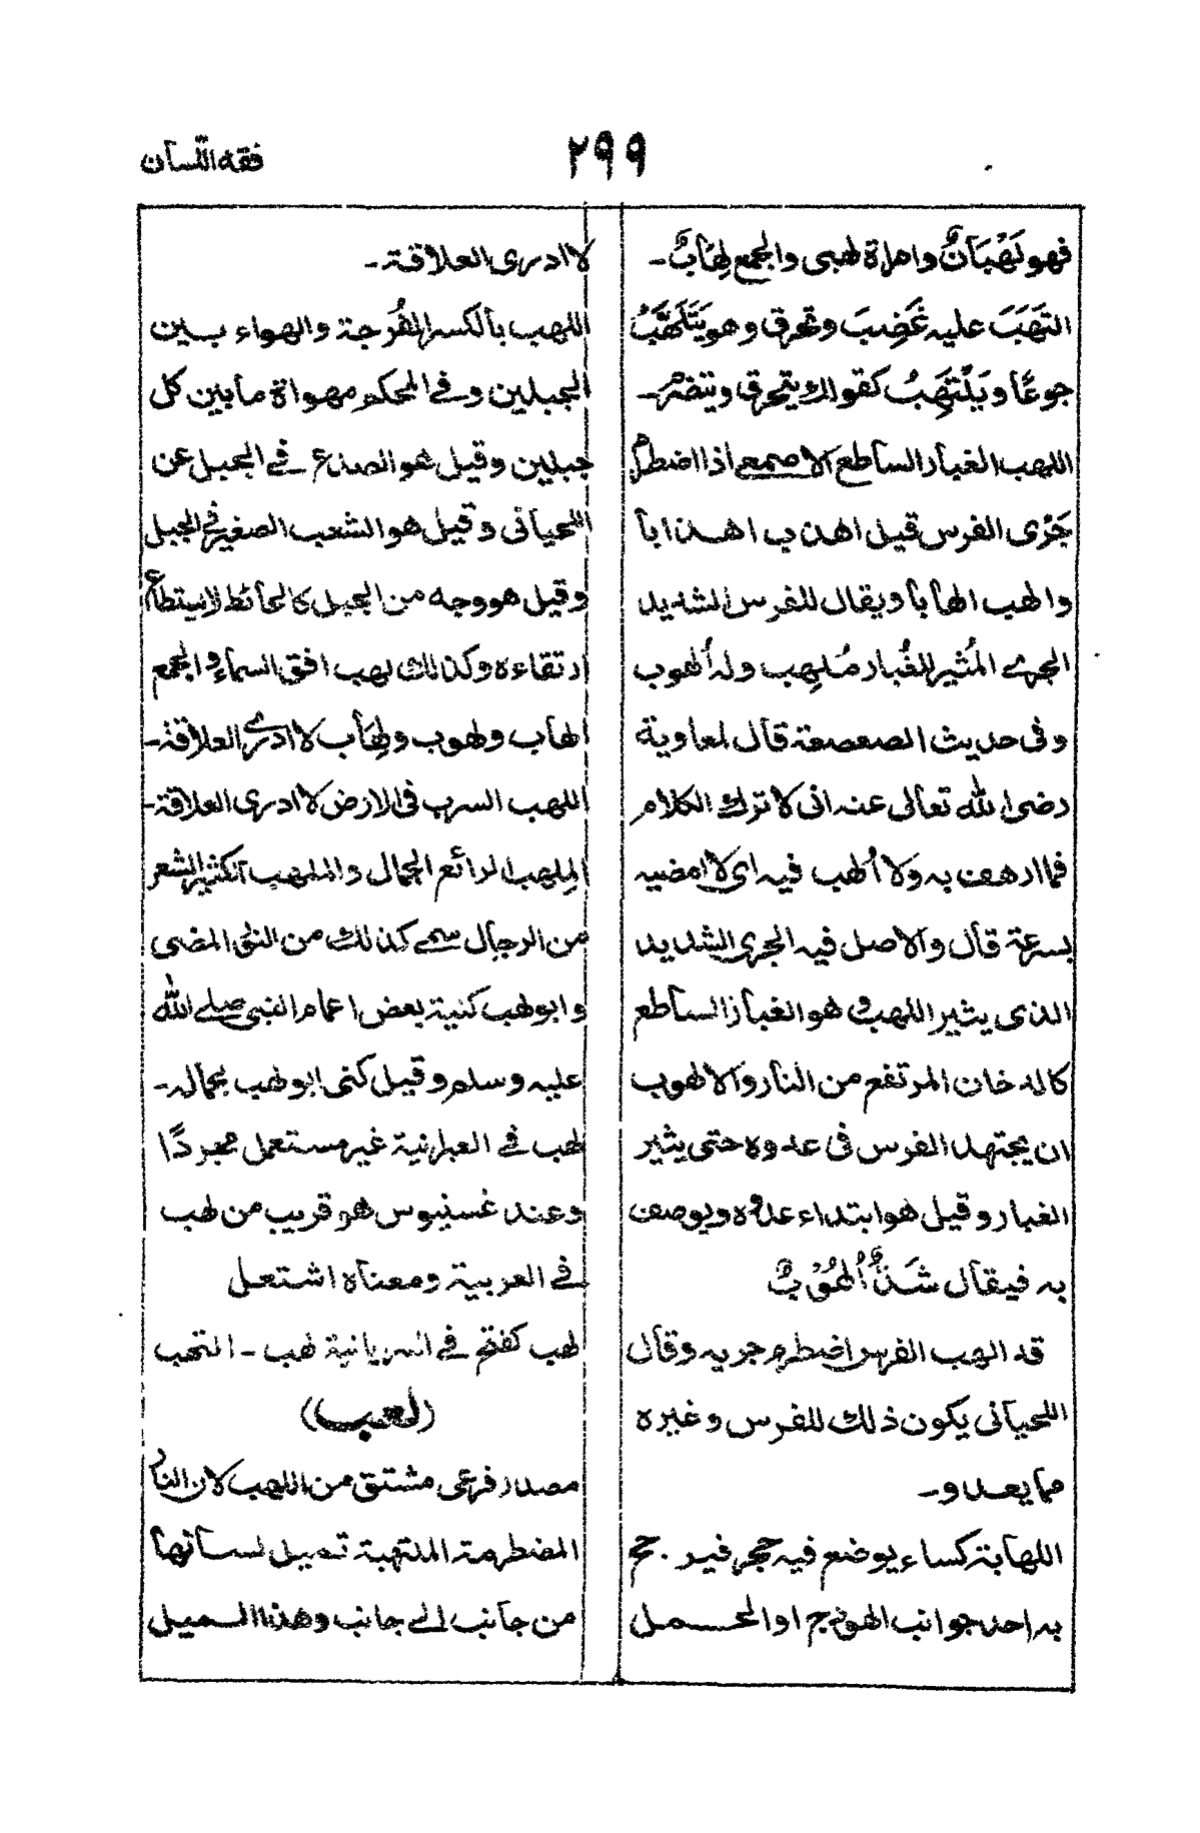 فقه اللسان
٢٩٩
فهو لَهْبَانٌ وامراة لهبى والجمع لِهَابٌ ـ
التَهَبَ عليه غَضِبَ وتحرق وهو يَتَلَهَّبُ
جوعًا ويَلْتَهِبُ كقولك يتحرق ويتضرم ـ
اللهب الغبار الساطع الاصمعى اذا اضطرم
جَرْى الفرس قيل اهذب اهذابا
والهب الهابا ويقال للفرس الشديد
الجرى المُثير للغُبار مُلهِب وله اُلهوب
وفى حديث الصعصعة قال لمعاوية
رضى الله تعالى عنه انى لا ترك الكلام
فما ارهف به ولا اُلهب فيه اى لا امضيه
بسرعة قال والاصل فيه الجرى الشديد
الذى يثير اللهب وهو الغبار الساطع
كالدخان المرتفع من النار والالهوب
ان يجتهد الفرس فى عدوه حتى يثير
الغبار وقيل هو ابتداء عدوه ويوصف
به فيقال شَدٌّ اُلهُوْبٌ
قد الهب الفرس اضطرم جريه وقال
اللحيانى يكون ذلك للفرس وغيره
مما يعدو ـ
اللهابة كساء يوضع فيه حجر فير . جح
به احد جوانب الهودج اوالمحمل
لا ادرى العلاقة ـ
اللهب بالكسر الفُرجة والهواء بين
الجبلين وفى المحكم مهواة مابين كل
جبلين وقيل هو الصدع فى الجبل عن
اللحيانى وقيل هو الشعب الصغير فى الجبل
وقيل هو وجه من الجبل كالحائط لايستطاع
ارتقاءه وكذالك لهب افق السماء والجمع
الهاب ولهوب ولِهاب لا ادرى العلاقة ـ
اللهب السرب فى الارض لا ادرى العلاقة ـ
المِلهب الرائع الجمال والملهب الكثير الشعر
من الرجال سمى كذلك من النقى المضى
وابولهب كنية بعض اعمام النبى صلى الله
عليه وسلم وقيل كنى ابو لهب لجماله ـ
لهب فى العبرانية غير مستعمل مجردًا
وعند غسنيوس هو قريب من لهب
فى العربية ومعناه اشتعل
لهب كفتح فى السريانية لهب ـ التهب
(لعب)
مصدر فرعى مشتق من اللهب لان النار
المضطرمة الملتهبة تميل لسانها
من جانب الى جانب وهذا الميل